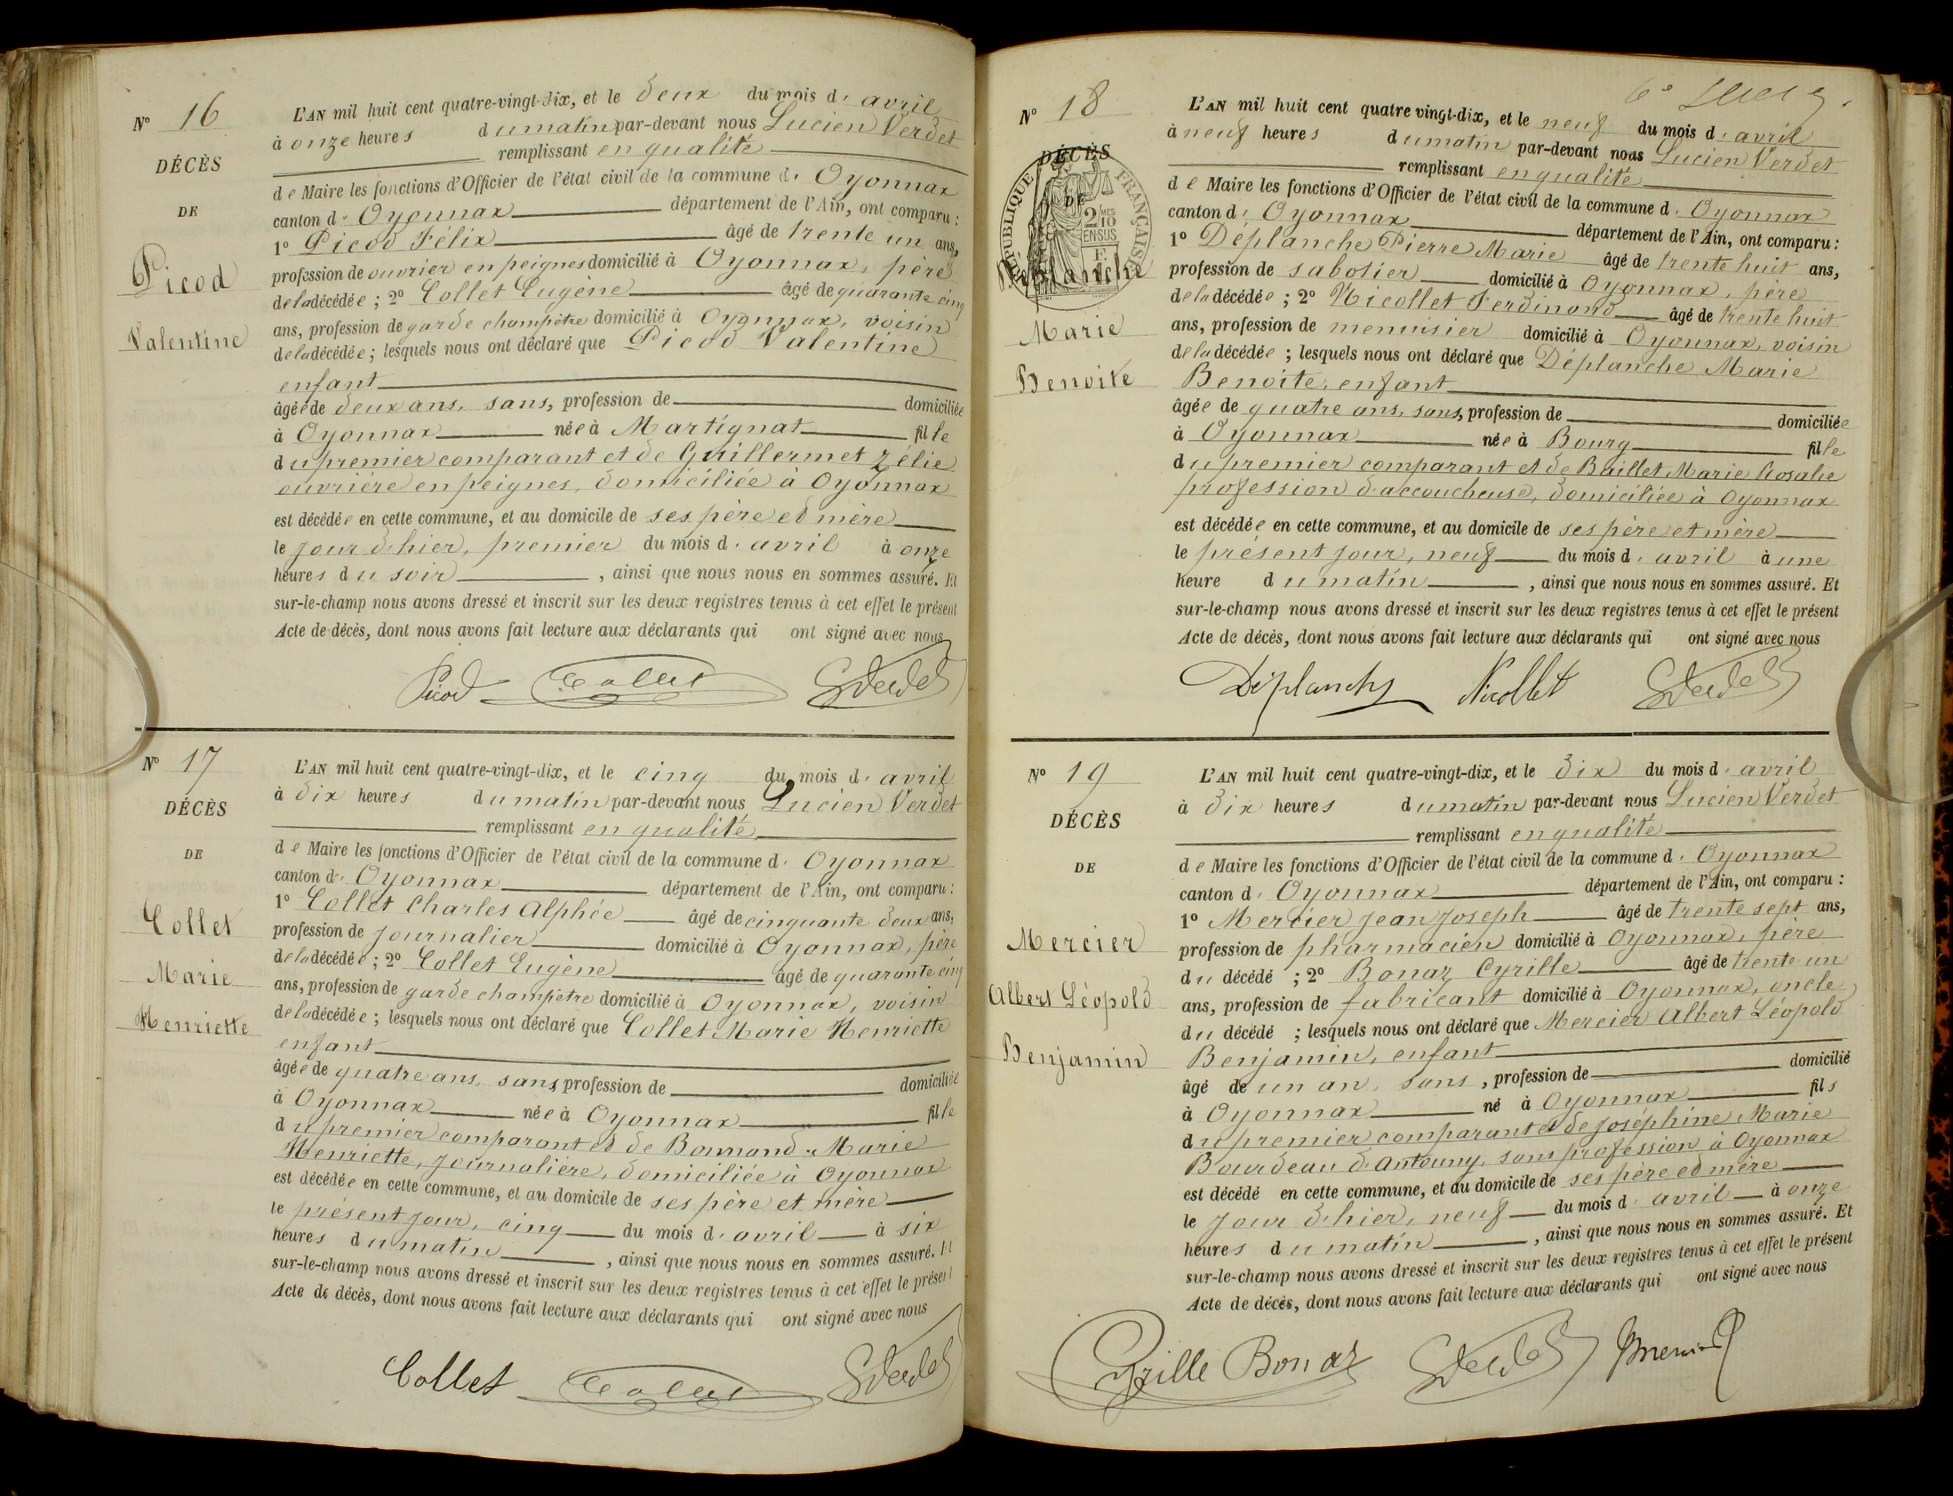 N° 16
DÉCÈS
DE
Picod
Valentine
L'AN mil huit cent quatre-vingt-dix, et le deux du mois d' avril
à onze heures du matin par-devant nous Lucien Verdet
remplissant en qualité
de Maire les fonctions d'Officier de l'état civil de la commune d' Oyonnax
canton d' Oyonnax département de l'Ain, ont comparu :
1° Picod Félix âgé de trente un ans,
profession de ouvrier en peignes domicilié à Oyonnax, père
de la décédée ; 2° Collet Eugène âgé de quarante cinq
ans, profession de garde champêtre domicilié à Oyonnax, voisin
de la décédée ; lesquels nous ont déclaré que Picod Valentine
enfant
âgée de deux ans, sans, profession de domiciliée
à Oyonnax née à Martignat fille
du premier comparant et de Guillermet Zélie
ouvrière en peignes, domiciliée à Oyonnax
est décédée en cette commune, et au domicile de ses père et mère
le jour d'hier, premier du mois d' avril à onze
heures du soir , ainsi que nous nous en sommes assuré. Et
sur-le-champ nous avons dressé et inscrit sur les deux registres tenus à cet effet le présent
Acte de décès, dont nous avons fait lecture aux déclarants qui ont signé avec nous
Picod Collet Verdet
N° 17
DÉCÈS
DE
Collet
Marie
Henriette
L'AN mil huit cent quatre-vingt-dix, et le cinq du mois d' avril
à dix heures du matin par-devant nous Lucien Verdet
remplissant en qualité
de Maire les fonctions d'Officier de l'état civil de la commune d' Oyonnax
canton d' Oyonnax département de l'Ain, ont comparu :
1° Collet Charles Alphée âgé de cinquante deux ans,
profession de journalier domicilié à Oyonnax, père
de la décédée ; 2° Collet Eugène âgé de quarante cinq
ans, profession de garde champêtre domicilié à Oyonnax, voisin
de la décédée ; lesquels nous ont déclaré que Collet Marie Henriette
enfant
âgée de quatre ans, sans, profession de domiciliée
à Oyonnax née à Oyonnax fille
du premier comparant et de Bonnand Marie
Henriette, journalière, domiciliée à Oyonnax
est décédée en cette commune, et au domicile de ses père et mère
le présent jour, cinq du mois d' avril à six
heures du matin , ainsi que nous nous en sommes assuré. Et
sur-le-champ nous avons dressé et inscrit sur les deux registres tenus à cet effet le présent
Acte de décès, dont nous avons fait lecture aux déclarants qui ont signé avec nous
Collet Collet Verdet
N° 18
DÉCÈS
DE
RÉPUBLIQUE FRANÇAISE
Déplanche
Marie
Benoite
L'AN mil huit cent quatre vingt-dix, et le neuf du mois d' avril
à neuf heures du matin par-devant nous Lucien Verdet
remplissant en qualité
de Maire les fonctions d'Officier de l'état civil de la commune d' Oyonnax
canton d' Oyonnax département de l'Ain, ont comparu :
1° Déplanche Pierre Marie âgé de trente huit ans,
profession de sabotier domicilié à Oyonnax, père
de la décédée ; 2° Nicollet Ferdinand âgé de trente huit
ans, profession de menuisier domicilié à Oyonnax, voisin
de la décédée ; lesquels nous ont déclaré que Déplanche Marie
Benoite, enfant
âgée de quatre ans, sans, profession de domiciliée
à Oyonnax née à Bourg fille
du premier comparant et de Baillet Marie Rosalie
profession d'accoucheuse, domiciliée à Oyonnax
est décédée en cette commune, et au domicile de ses père et mère
le présent jour, neuf du mois d' avril à une
heure du matin , ainsi que nous nous en sommes assuré. Et
sur-le-champ nous avons dressé et inscrit sur les deux registres tenus à cet effet le présent
Acte de décès, dont nous avons fait lecture aux déclarants qui ont signé avec nous
Déplanche Nicollet Verdet
N° 19
DÉCÈS
DE
Mercier
Albert Léopold
Benjamin
L'AN mil huit cent quatre-vingt-dix, et le dix du mois d' avril
à dix heures du matin par-devant nous Lucien Verdet
remplissant en qualité
de Maire les fonctions d'Officier de l'état civil de la commune d' Oyonnax
canton d' Oyonnax département de l'Ain, ont comparu :
1° Mercier Jean Joseph âgé de trente sept ans,
profession de pharmacien domicilié à Oyonnax, père
du décédé ; 2° Bonaz Cyrille âgé de trente un
ans, profession de fabricant domicilié à Oyonnax, oncle
du décédé ; lesquels nous ont déclaré que Mercier Albert Léopold
Benjamin, enfant
âgé de un an, sans, profession de domicilié
à Oyonnax né à Oyonnax fils
du premier comparant et de Joséphine Marie
Bourdeau d'Antouny, sans profession à Oyonnax
est décédé en cette commune, et au domicile de ses père et mère
le jour d'hier, neuf du mois d' avril à onze
heures du matin , ainsi que nous nous en sommes assuré. Et
sur-le-champ nous avons dressé et inscrit sur les deux registres tenus à cet effet le présent
Acte de décès, dont nous avons fait lecture aux déclarants qui ont signé avec nous
Cyrille Bonaz Verdet JMercier